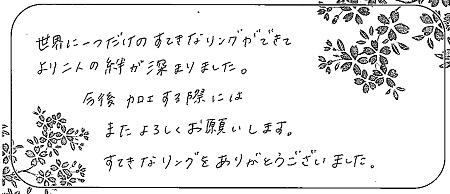 世界に一つだけのすてきなリングができて
より二人の絆が深まりました。
今後加工する際には
またよろしくお願いします。
すてきなリングをありがとうございました。